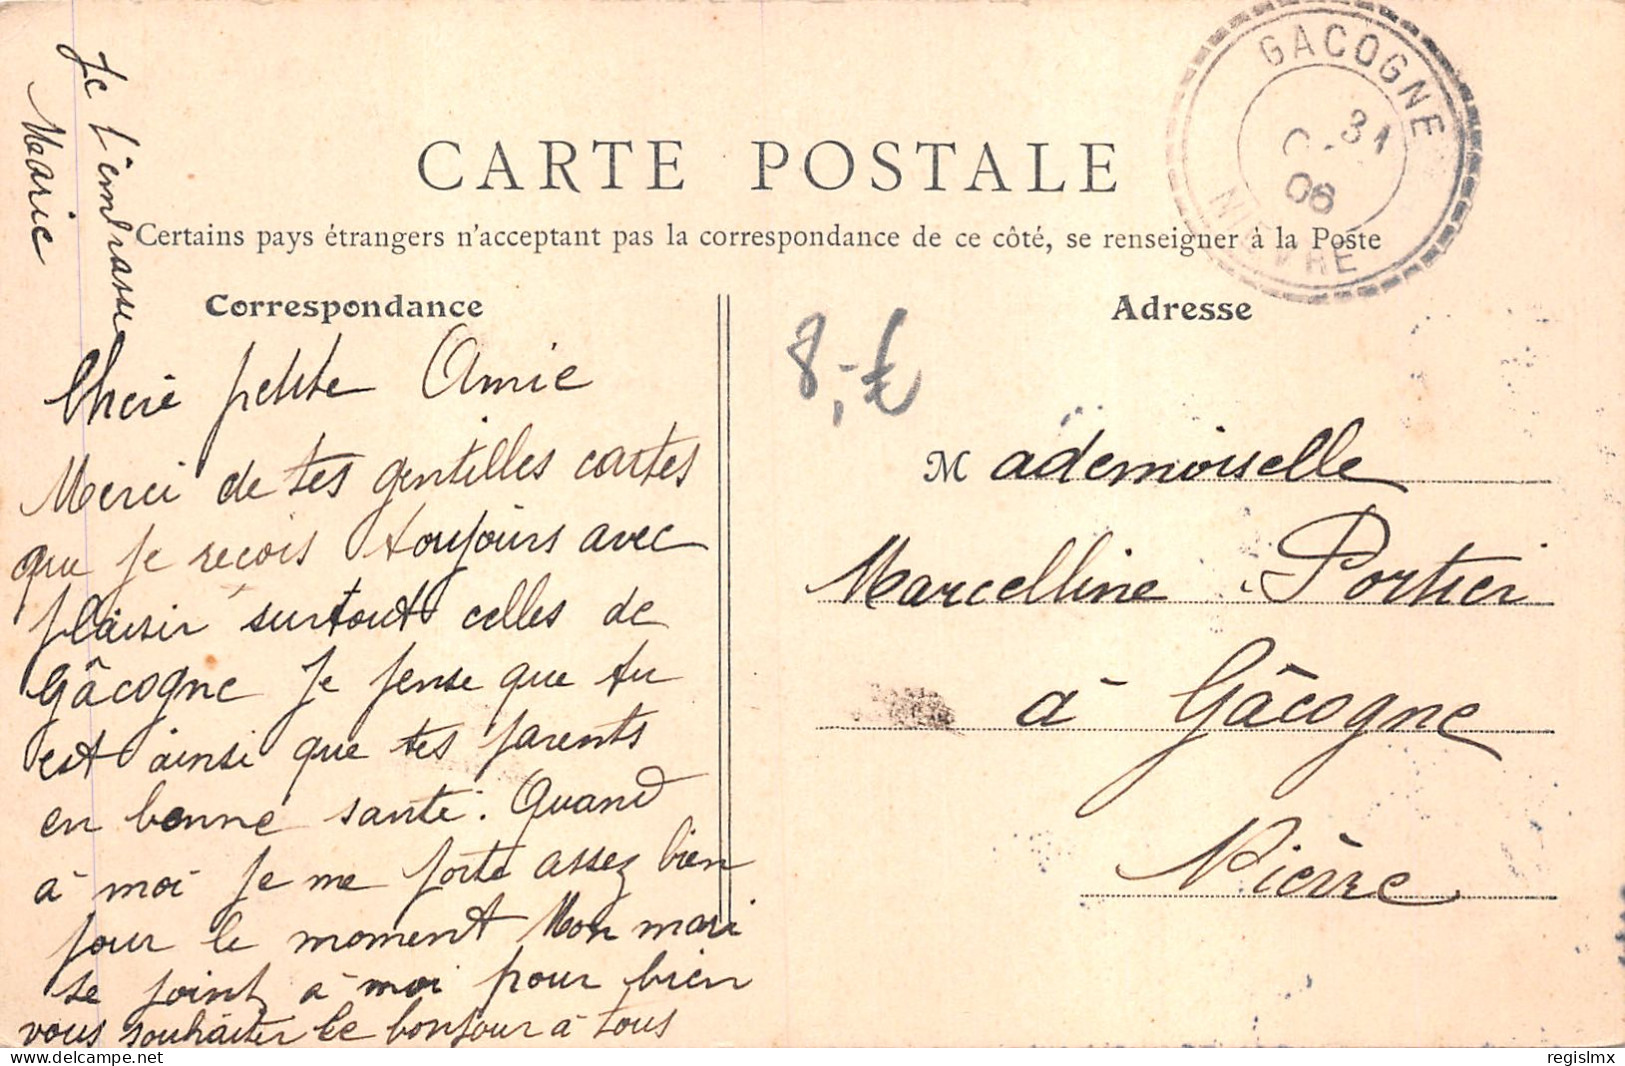 Je t'embrasse
Marie
GACOGNE
31
08
NIEVRE
CARTE POSTALE
Certains pays étrangers n'acceptant pas la correspondance de ce côté, se renseigner à la Poste
Correspondance
Adresse
8,-€
Chère petite Amie
Merci de tes gentilles cartes
que je reçois toujours avec
plaisir surtout celles de
Gâcogne Je pense que tu
est ainsi que tes parents
en bonne santé. Quand
à moi je me porte assez bien
pour le moment Mon mari
se joint à moi pour bien
vous souhaiter le bonjour à tous
Mademoiselle
Marcelline Portier
à Gâcogne
Nièvre
www.delcampe.net
regislmx